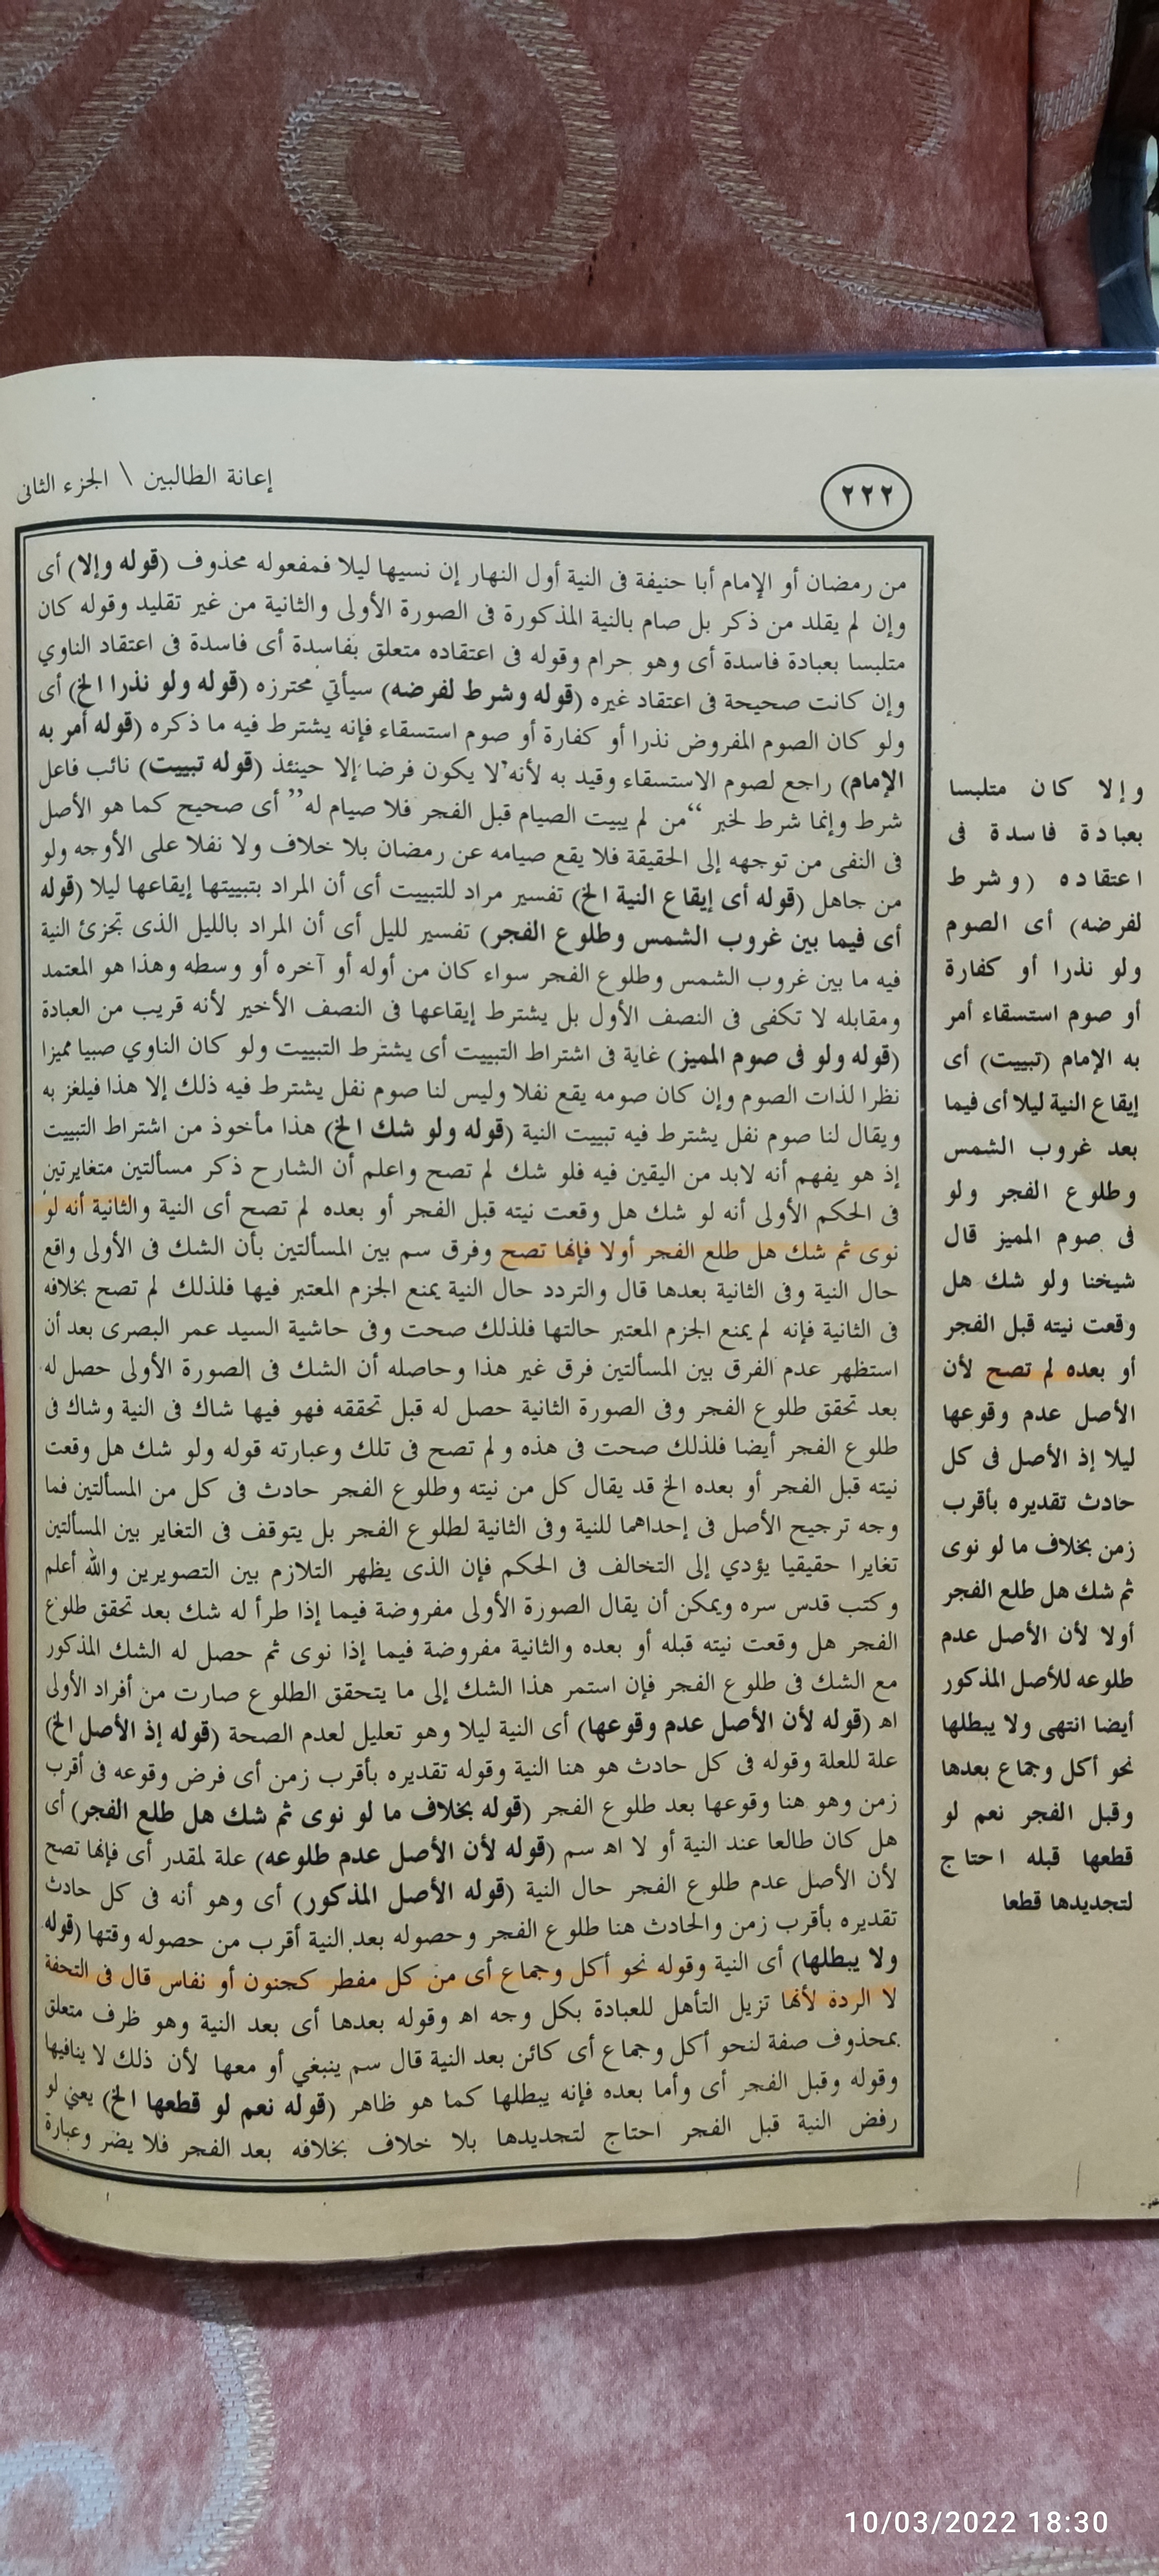 إعانة الطالبين \ الجزء الثانى
٢٢٢
من رمضان أو الإمام أبا حنيفة فى النية أول النهار إن نسيها ليلا فمفعوله محذوف (قوله وإلا) أى
وإن لم يقلد من ذكر بل صام بالنية المذكورة فى الصورة الأولى والثانية من غير تقليد وقوله كان
متلبسا بعبادة فاسدة أى وهو حرام وقوله فى اعتقاده متعلق بفاسدة أى فاسدة فى اعتقاد الناوي
وإن كانت صحيحة فى اعتقاد غيره (قوله وشرط لفرضه) سيأتي محترزه (قوله ولو نذرا الخ) أى
ولو كان الصوم المفروض نذرا أو كفارة أو صوم استسقاء فإنه يشترط فيه ما ذكره (قوله أمر به
الإمام) راجع لصوم الاستسقاء وقيد به لأنه لا يكون فرضا إلا حينئذ (قوله تبييت) نائب فاعل
شرط وإنما شرط لخبر “من لم يبيت الصيام قبل الفجر فلا صيام له” أى صحيح كما هو الأصل
فى النفى من توجهه إلى الحقيقة فلا يقع صيامه عن رمضان بلا خلاف ولا نفلا على الأوجه ولو
من جاهل (قوله أى إيقاع النية الخ) تفسير مراد للتبييت أى أن المراد بتبييتها إيقاعها ليلا (قوله
أى فيما بين غروب الشمس وطلوع الفجر) تفسير لليل أى أن المراد بالليل الذى تجزئ النية
فيه ما بين غروب الشمس وطلوع الفجر سواء كان من أوله أو آخره أو وسطه وهذا هو المعتمد
ومقابله لا تكفى فى النصف الأول بل يشترط إيقاعها فى النصف الأخير لأنه قريب من العبادة
(قوله ولو فى صوم المميز) غاية فى اشتراط التبييت أى يشترط التبييت ولو كان الناوي صبيا مميزا
نظرا لذات الصوم وإن كان صومه يقع نفلا وليس لنا صوم نفل يشترط فيه ذلك إلا هذا فيلغز به
ويقال لنا صوم نفل يشترط فيه تبييت النية (قوله ولو شك الخ) هذا مأخوذ من اشتراط التبييت
إذ هو يفهم أنه لابد من اليقين فيه فلو شك لم تصح واعلم أن الشارح ذكر مسألتين متغايرتين
فى الحكم الأولى أنه لو شك هل وقعت نيته قبل الفجر أو بعده لم تصح أى النية والثانية أنه لو
نوى ثم شك هل طلع الفجر أولا فإنها تصح وفرق سم بين المسألتين بأن الشك فى الأولى واقع
حال النية وفى الثانية بعدها قال والتردد حال النية يمنع الجزم المعتبر فيها فلذلك لم تصح بخلافه
فى الثانية فإنه لم يمنع الجزم المعتبر حالتها فلذلك صحت وفى حاشية السيد عمر البصرى بعد أن
استظهر عدم الفرق بين المسألتين فرق غير هذا وحاصله أن الشك فى الصورة الأولى حصل له
بعد تحقق طلوع الفجر وفى الصورة الثانية حصل له قبل تحققه فهو فيها شاك فى النية وشاك فى
طلوع الفجر أيضا فلذلك صحت فى هذه ولم تصح فى تلك وعبارته قوله ولو شك هل وقعت
نيته قبل الفجر أو بعده الخ قد يقال كل من نيته وطلوع الفجر حادث فى كل من المسألتين فما
وجه ترجيح الأصل فى إحداهما للنية وفى الثانية لطلوع الفجر بل يتوقف فى التغاير بين المسألتين
تغايرا حقيقيا يؤدي إلى التخالف فى الحكم فإن الذى يظهر التلازم بين التصويرين والله أعلم
وكتب قدس سره ويمكن أن يقال الصورة الأولى مفروضة فيما إذا طرأ له شك بعد تحقق طلوع
الفجر هل وقعت نيته قبله أو بعده والثانية مفروضة فيما إذا نوى ثم حصل له الشك المذكور
مع الشك فى طلوع الفجر فإن استمر هذا الشك إلى ما يتحقق الطلوع صارت من أفراد الأولى
اه (قوله لأن الأصل عدم وقوعها) أى النية ليلا وهو تعليل لعدم الصحة (قوله إذ الأصل الخ)
علة للعلة وقوله فى كل حادث هو هنا النية وقوله تقديره بأقرب زمن أى فرض وقوعه فى أقرب
زمن وهو هنا وقوعها بعد طلوع الفجر (قوله بخلاف ما لو نوى ثم شك هل طلع الفجر) أى
هل كان طالعا عند النية أو لا اه سم (قوله لأن الأصل عدم طلوعه) علة لمقدر أى فإنها تصح
لأن الأصل عدم طلوع الفجر حال النية (قوله الأصل المذكور) أى وهو أنه فى كل حادث
تقديره بأقرب زمن والحادث هنا طلوع الفجر وحصوله بعد النية أقرب من حصوله وقتها (قوله
ولا يبطلها) أى النية وقوله نحو أكل وجماع أى من كل مفطر كجنون أو نفاس قال فى التحفة
لا الردة لأنها تزيل التأهل للعبادة بكل وجه اه وقوله بعدها أى بعد النية وهو ظرف متعلق
بمحذوف صفة لنحو أكل وجماع أى كائن بعد النية قال سم ينبغي أو معها لأن ذلك لا ينافيها
وقوله وقبل الفجر أى وأما بعده فإنه يبطلها كما هو ظاهر (قوله نعم لو قطعها الخ) يعني لو
رفض النية قبل الفجر احتاج لتجديدها بلا خلاف بخلافه بعد الفجر فلا يضر وعبارة
وإلا كان متلبسا
بعبادة فاسدة فى
اعتقاده (وشرط
لفرضه) أى الصوم
ولو نذرا أو كفارة
أو صوم استسقاء أمر
به الإمام (تبييت) أى
إيقاع النية ليلا أى فيما
بعد غروب الشمس
وطلوع الفجر ولو
فى صوم المميز قال
شيخنا ولو شك هل
وقعت نيته قبل الفجر
أو بعده لم تصح لأن
الأصل عدم وقوعها
ليلا إذ الأصل فى كل
حادث تقديره بأقرب
زمن بخلاف ما لو نوى
ثم شك هل طلع الفجر
أولا لأن الأصل عدم
طلوعه للأصل المذكور
أيضا انتهى ولا يبطلها
نحو أكل وجماع بعدها
وقبل الفجر نعم لو
قطعها قبله احتاج
لتجديدها قطعا
10/03/2022 18:30